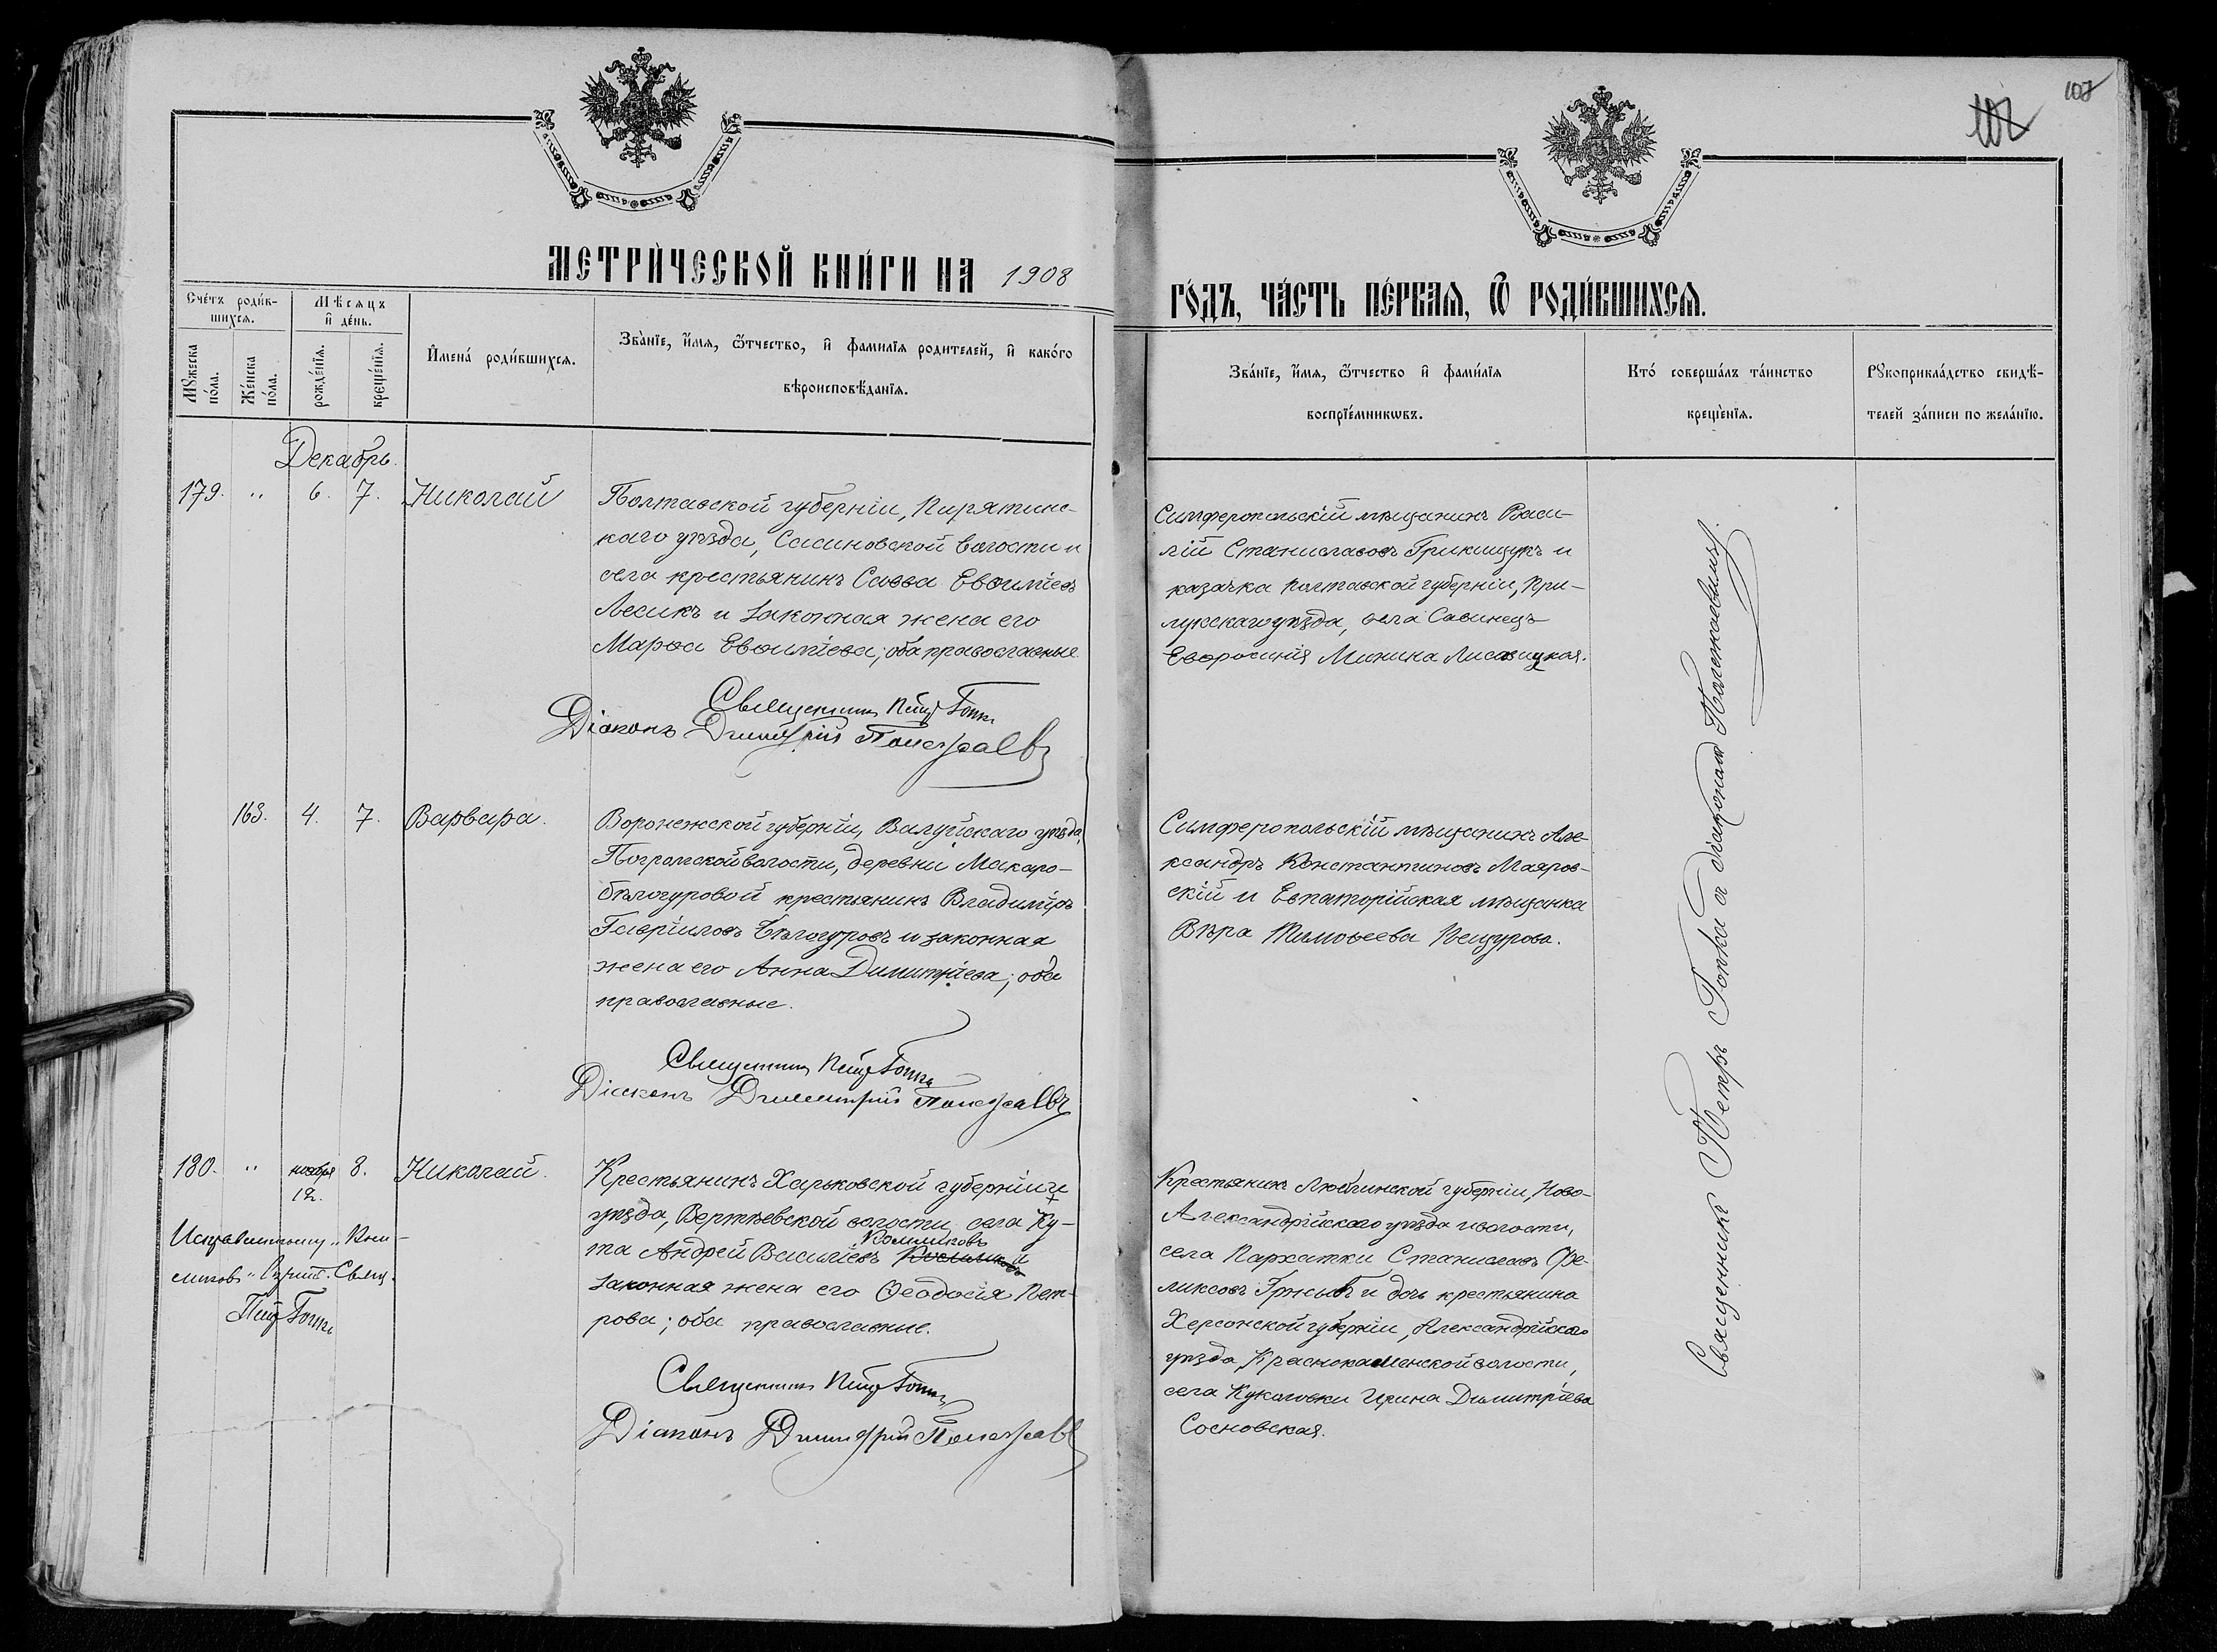 107
МЕТРИ́ЧЕСКОЙ КНИ́ГИ НА 1908
ГО́ДЪ, ЧА́СТЬ ПЕ́РВАЯ, Ѿ РОДИ́ВШИХСЯ.
Сче́тъ роди́в-
шихся.
Мѣ́сяцъ
и҆ де́нь.
И҆мена́ роди́вшихся.
Зва́нїе, и҆́мя, ѻ҆́тчество, и҆ фами́лїя родителей, и҆ како́го
вѣроисповѣ́данїя.
Мꙋ́жеска по́ла.
Же́нска по́ла.
рожде́нїя.
креще́нїя.
Зва́нїе, и҆́мя, ѻ҆́тчество и҆ фами́лїя
воспрїе́мникωвъ.
Кто́ соверша́лъ та́инство
креще́нїя.
Рꙋкоприкла́дство свидѣ́-
телей за́писи по жела́нїю.
Декабрь.
179. " 6. 7. Николай
Полтавской губерніи, Пирятинс-
каго уѣзда, Сасиновской волости и
села крестьянинъ Савва Евѳиміевъ
Лесикъ и законная жена его
Марѳа Евѳиміева; оба православные.
Священникъ Петръ Гопка
Діаконъ Димитрій
Симферопольскій мѣщанинъ Васи-
лій Станиславовъ Грикищукъ и
казачка Полтавской губерніи, При-
лукскаго уѣзда, села Савинецъ
Евфросинія Минина Лисовицкая.
163. 4. 7. Варвара.
Воронежской губерніи, Валуйскаго уѣзда,
Погромской волости, деревни Макаро-
бѣлогуровой крестьянинъ Владиміръ
Гавріиловъ Бѣлогуровъ и законная
жена его Анна Димитріева; оба
православные.
Священникъ Петръ Гопка
Діаконъ Димитрій
Симферопольскій мѣщанинъ Але-
ксандръ Константиновъ Маяров-
скій и Евпаторійская мѣщанка
Вѣра Тимоѳеева Пещурова.
180. " ноября 8. Николай.
12.
Исправленному
Свящ.
Петръ Гопка
Крестьянинъ Харьковской губерніи и
уѣзда, Вертѣевской волости, села Ку-
та Андрей Васильевъ и
законная жена его Ѳеодосія Пет-
рова; оба православные.
Священникъ Петръ Гопка
Діаконъ Димитрій
Крестьянинъ Люблинской губерніи, Ново-
Александрійскаго уѣзда и волости,
села Пархатки Станиславъ Фе-
ликсовъ и дочь крестьянина
Херсонской губерніи, Александрійскаго
уѣзда, Краснокаменской волости,
села Куколовки Ирина Димитріева
Сосновская.
Священникъ Петръ Гопка съ діакономъ